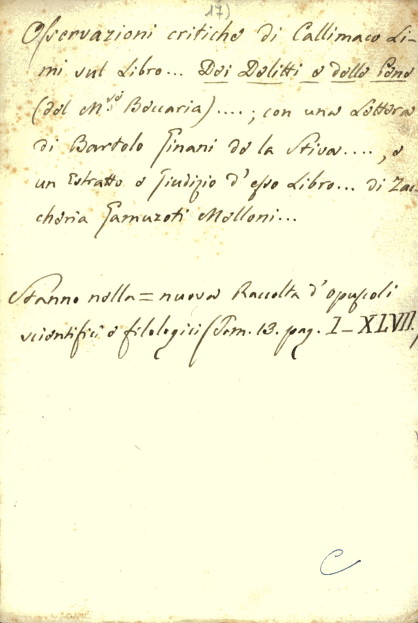 17)
Osservazioni critiche di Callimaco Li-
mi sul Libro... Dei Delitti e delle Pene
(del M.se Beccaria)....; con una Lettera
di Bartolo Ginani de la Stiva...., e
un Estratto e Giudizio d'esso Libro... di Zac-
cheria Molloni...
Stanno nella = nuova Raccolta d'opuscoli
scientifici e filologici (Tom. 13. pag. I–XLVII.)
C